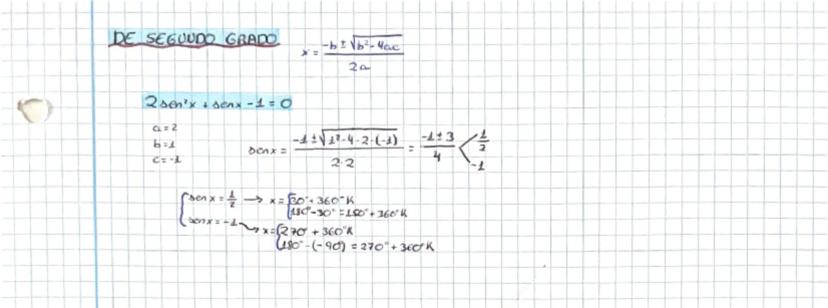 DE SEGUNDO GRADO
x = (-b ± √(b² - 4ac)) / 2a
2sen²x + senx - 1 = 0
a = 2
b = 1
c = -1
senx = (-1 ± √(1² - 4 · 2 · (-1))) / 2·2 = (-1 ± 3) / 4 < 1/2
-1
{ senx = 1/2 → x = { 30° + 360°K
180° - 30° = 150° + 360°K
senx = -1 → x = { 270° + 360°K
180° - (-90°) = 270° + 360°K